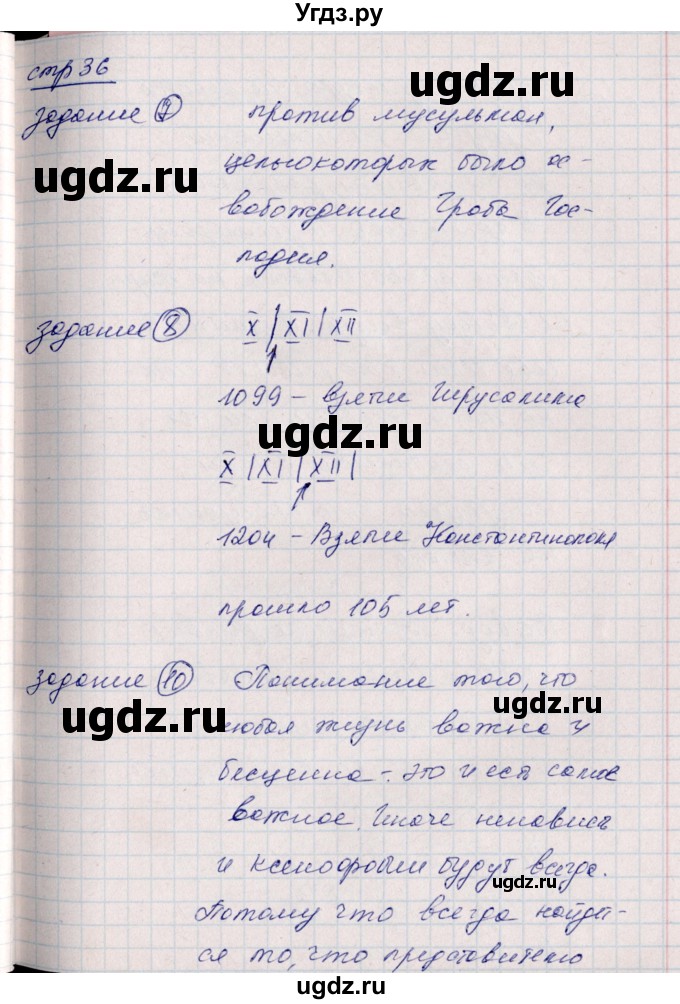 Угдз.ру
стр 36
ugdz.ru
задание 7 против мусульман,
целью которых было ос-
ugdz.ru
вобождение Гроба Гос-
подня.
задание 8 X | XI | XII
1099 – взятие Иерусалима
ugdz.ru
X | XI | XII |
1204 – Взятие Константинополя
прошло 105 лет.
задание 10 Понимание того, что
ugdz.ru
любая жизнь важна и
бесценна – это и есть самое
важное. Иначе ненависть
и ксенофобии будут всегда.
ugdz.ru
Потому что всегда найдёт-
ся то, что представителю
ugdz.ru